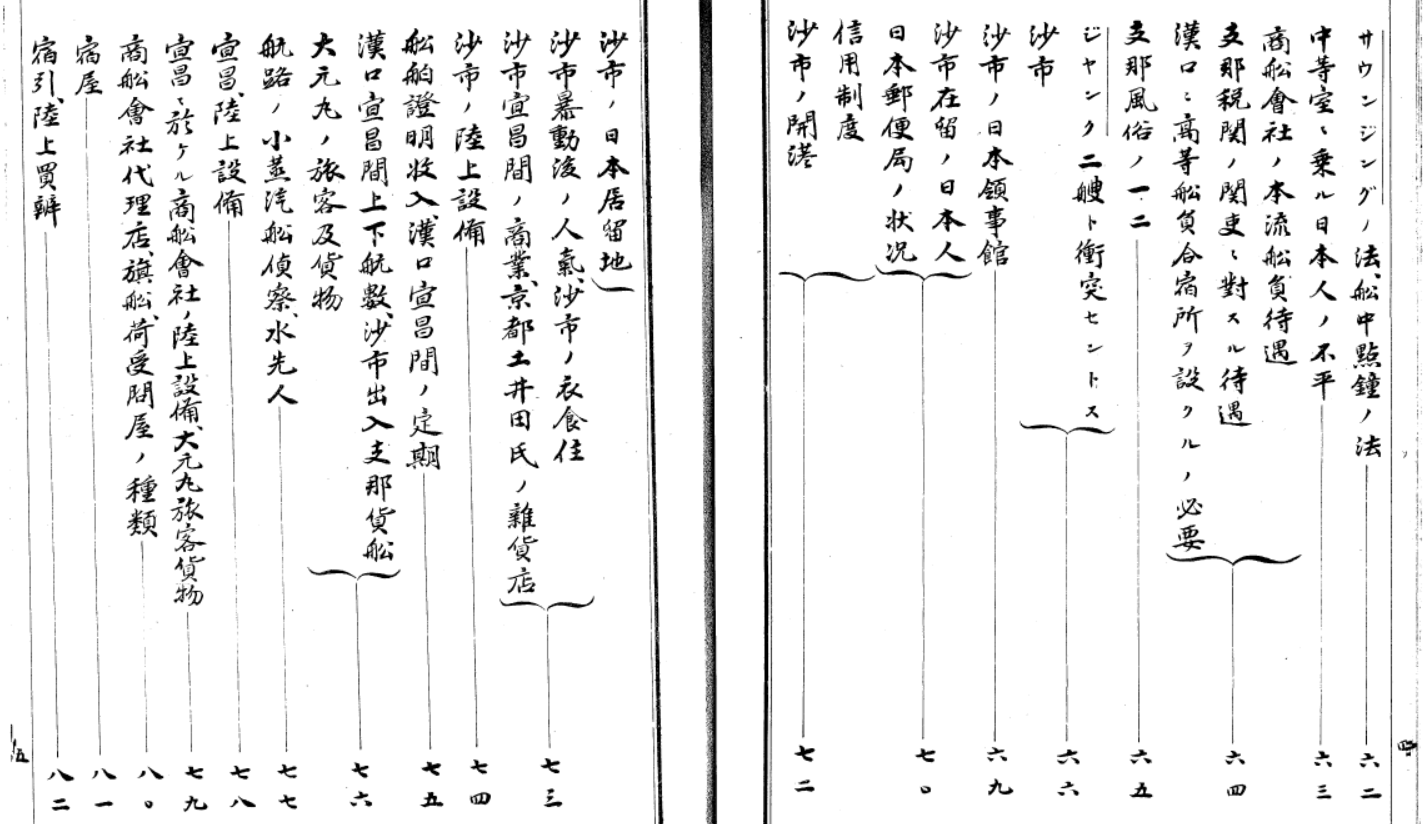 サウンジングノ法、船中點鐘ノ法 六二
中等室ニ乗ル日本人ノ不平 六三
商船會社ノ本流船員待遇
支那税関ノ関吏ニ對スル待遇
漢口ニ高等船員合宿所ヲ設クルノ必要 六四
支那風俗ノ一二 六五
ジヤンク二艘ト衝突セントス
沙市 六六
沙市ノ日本領事館 六九
沙市在留ノ日本人
日本郵便局ノ状況 七〇
信用制度
沙市ノ開港 七二
四
沙市ノ日本居留地
沙市暴動後ノ人氣、沙市ノ衣食住
沙市宣昌間ノ商業、京都土井田氏ノ雜貨店 七三
沙市ノ陸上設備 七四
船舶證明收入、漢口宣昌間ノ定期 七五
漢口宣昌間上下航數、沙市出入支那貨船
大元丸ノ旅客及貨物 七六
航路ノ小蒸汽船偵察、水先人 七七
宣昌、陸上設備 七八
宣昌ニ於ケル商船會社ノ陸上設備、大元丸旅客貨物 七九
商船會社代理店、旗船、荷受問屋ノ種類 八〇
宿屋 八一
宿引、陸上買辨 八二
五